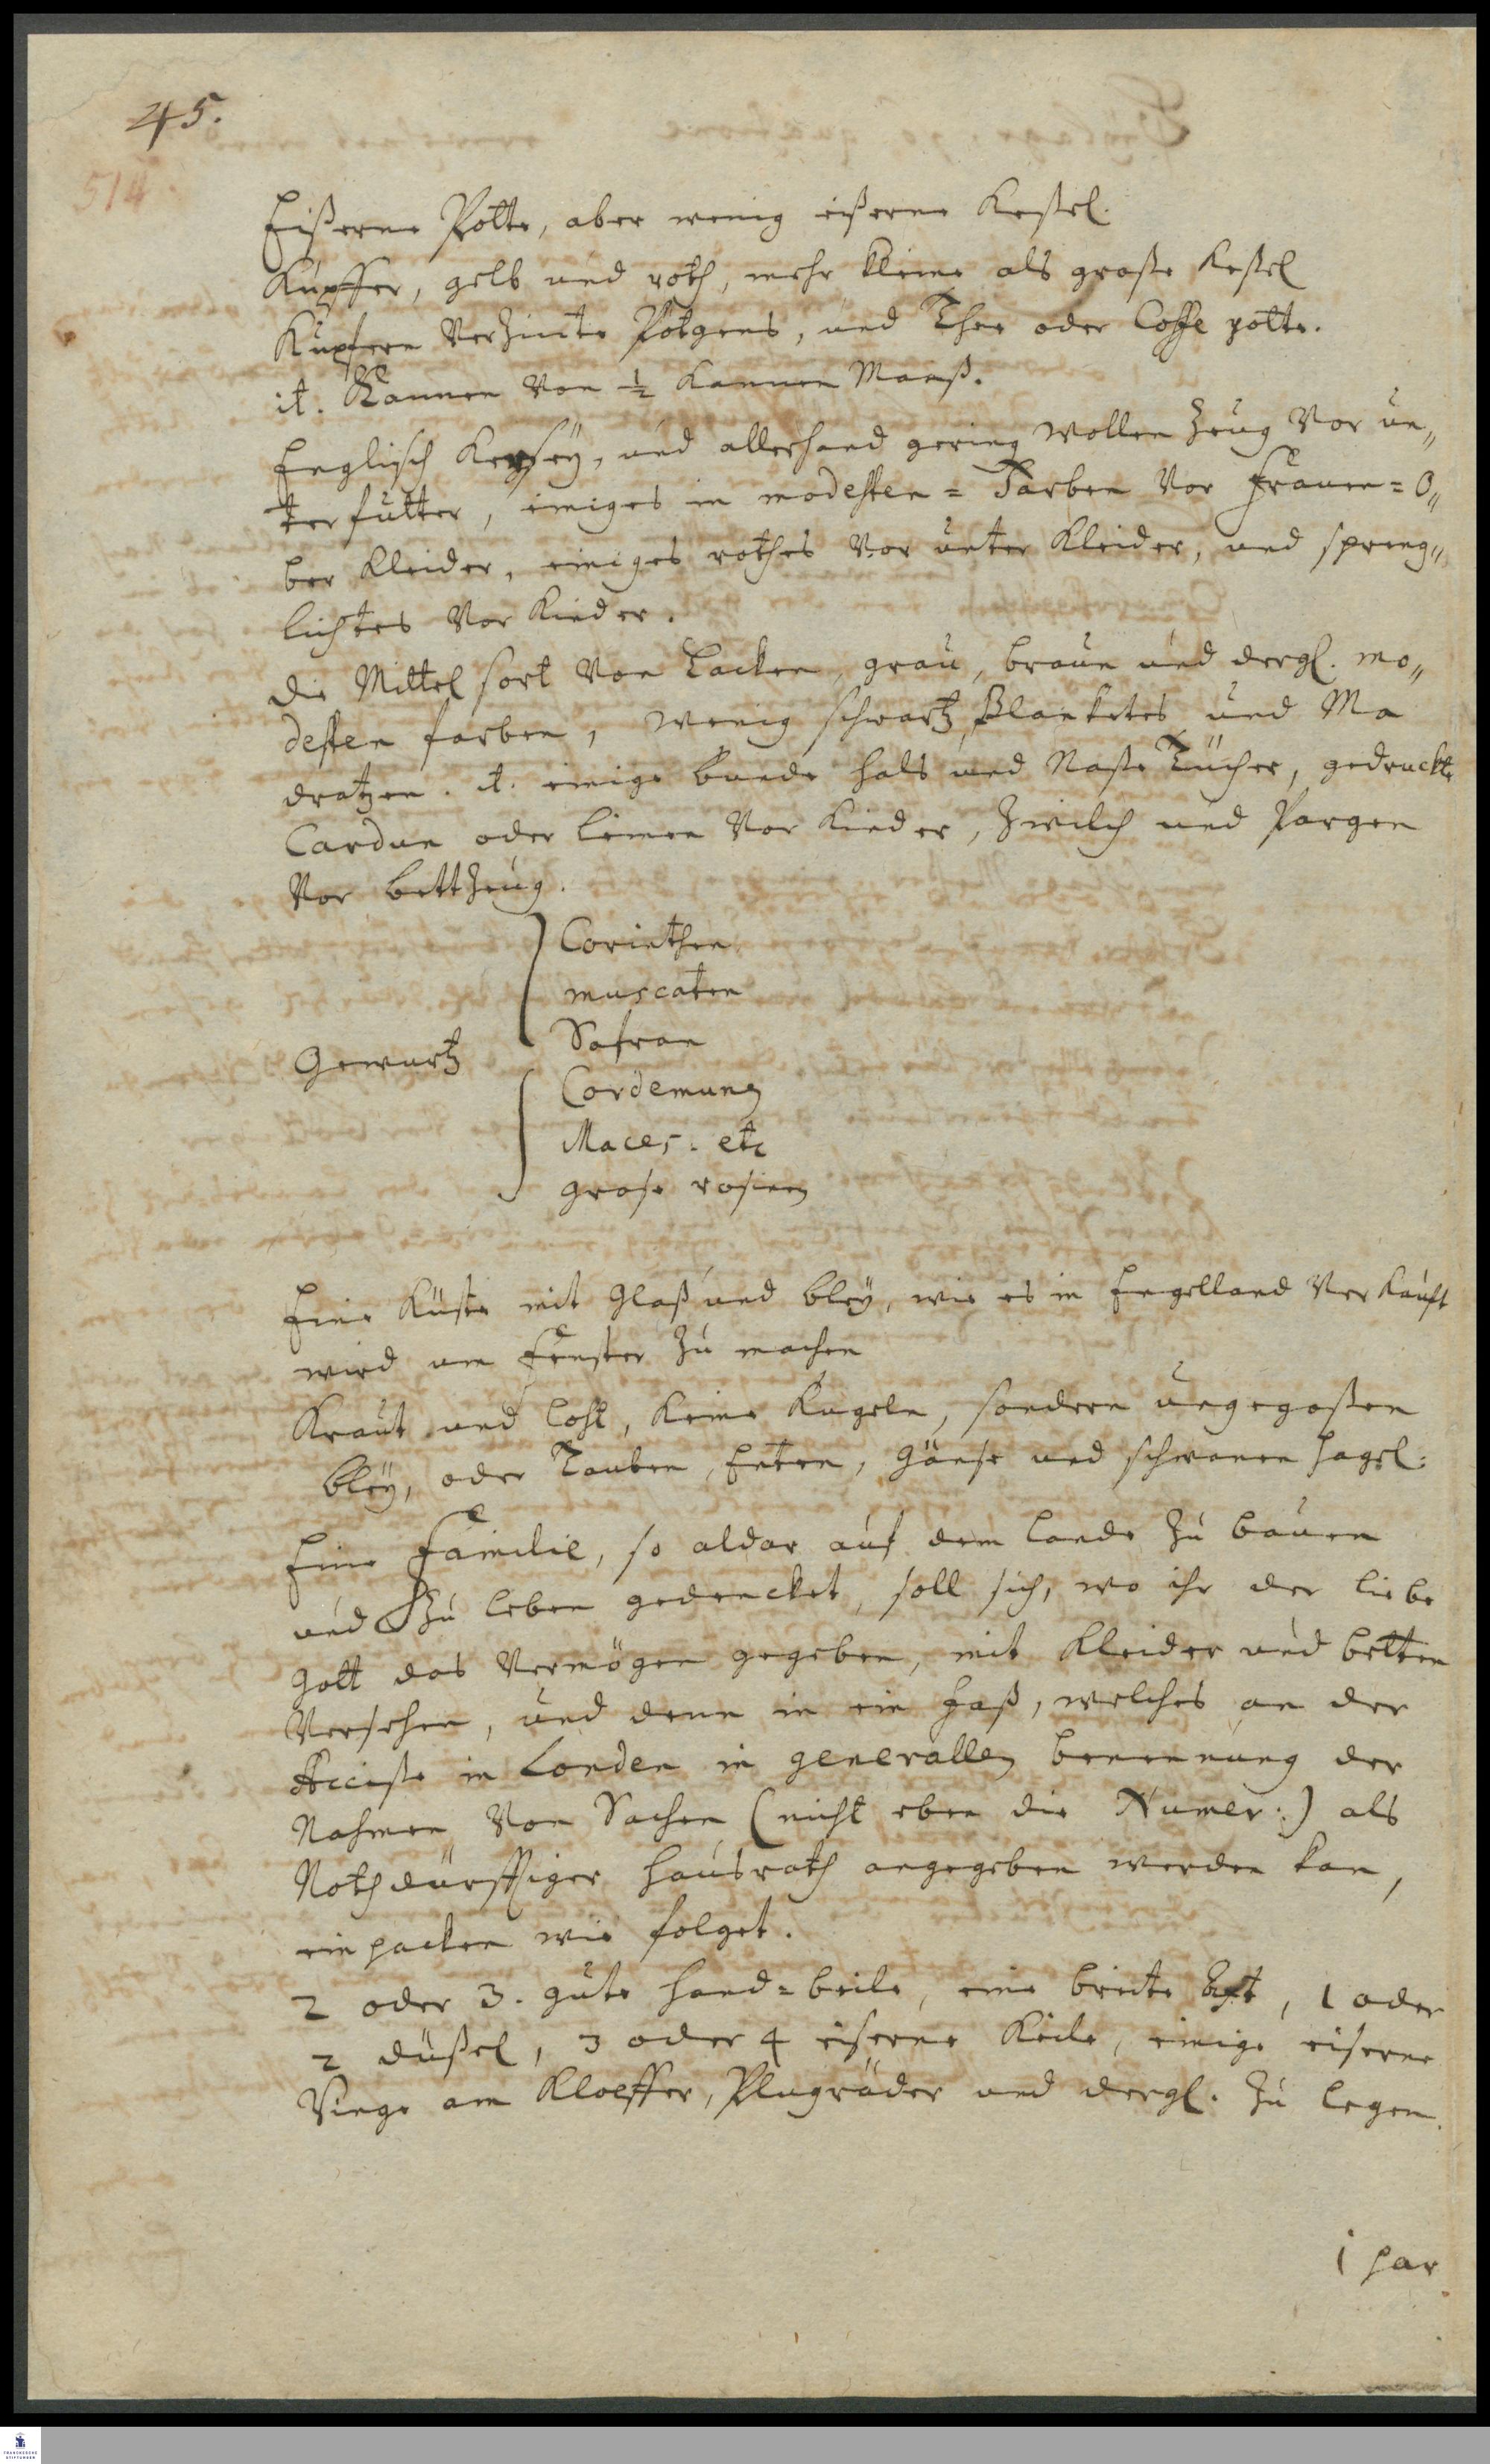 45.
514
Eißerne Potte, aber wenig eißerne Keßel.
Kupffer, gelb und roth, mehr kleine als große Keßel
Kupferne Verzinte Pötgens, und Thee oder Coffe potte.
it. Kannen von ½ Kannen Maaß.
Englisch Kersey, und allerhand gering wollen Zeug Vor un„
terfutter, einiges in modesten=Farben Vor Frauen=O„
ber Kleider, einiges rothes Vor unter Kleider, und spreng„
lichtes Vor Kinder.
die Mittel sort Von Lacken, grau, braun und dergl. mo„
desten farben, wenig schwartz, Blanketes und Ma
dratzen. it. einige bunde hals und Naße Tücher, gedruckte
Cardun oder Linnen Vor Kinder, Zwilch und Pargen
Vor bettzeug.
Corinthen
muscaten
Safran
Gewurtz
Cordemung
Maces. etc
große rosinen
Eine Küste mit Glaß und bley, wie es in Engelland Verkauft
wird um Fenster zu machen
Kraut und Loht, keine Kugeln, sondern ungegoßen
bley, oder Tauben, Enten, Gänse und schwanen hagel.
Eine Familie, so aldar auf dem Lande zu bauen
und zu leben gedencket, soll sich, wo ihr der liebe
Gott das Vermögen gegeben, mit Kleider und betten
Versehen, und dann in ein Faß, welches an der
Acciße in Londen in generallen benennung der
Nahmen Von Sachen (nicht eben die Numer:) als
Nothdürfftiger Hausrath angegeben werden kan,
einpacken wie folget.
2 oder 3. gute Hand=beile, eine breite Axt, 1 oder
2 düßel, 3 oder 4 eiserne Keile, einige eiserne
Ringe um Kloeffer, Plugräder und dergl. zu legen.
1 par
FRANCKESCHE STIFTUNGEN